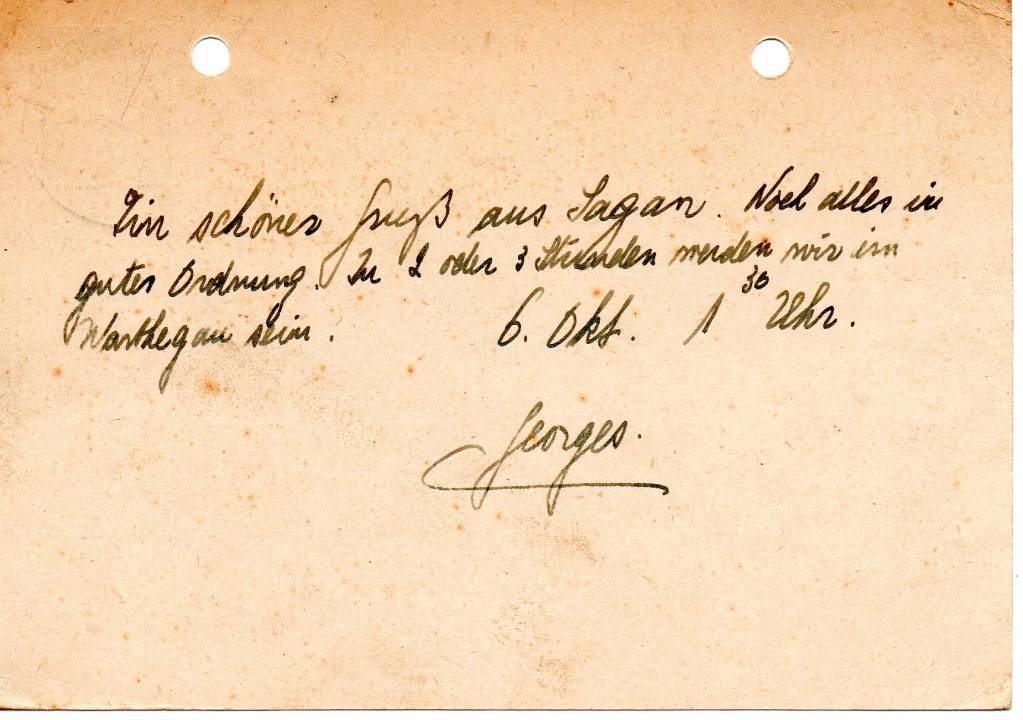 Ein schöner Gruß aus Sagan. Noch alles in
guter Ordnung. In 2 oder 3 Stunden werden wir im
Warthegau sein. 6. Okt. 1³⁰ Uhr.
Georges.